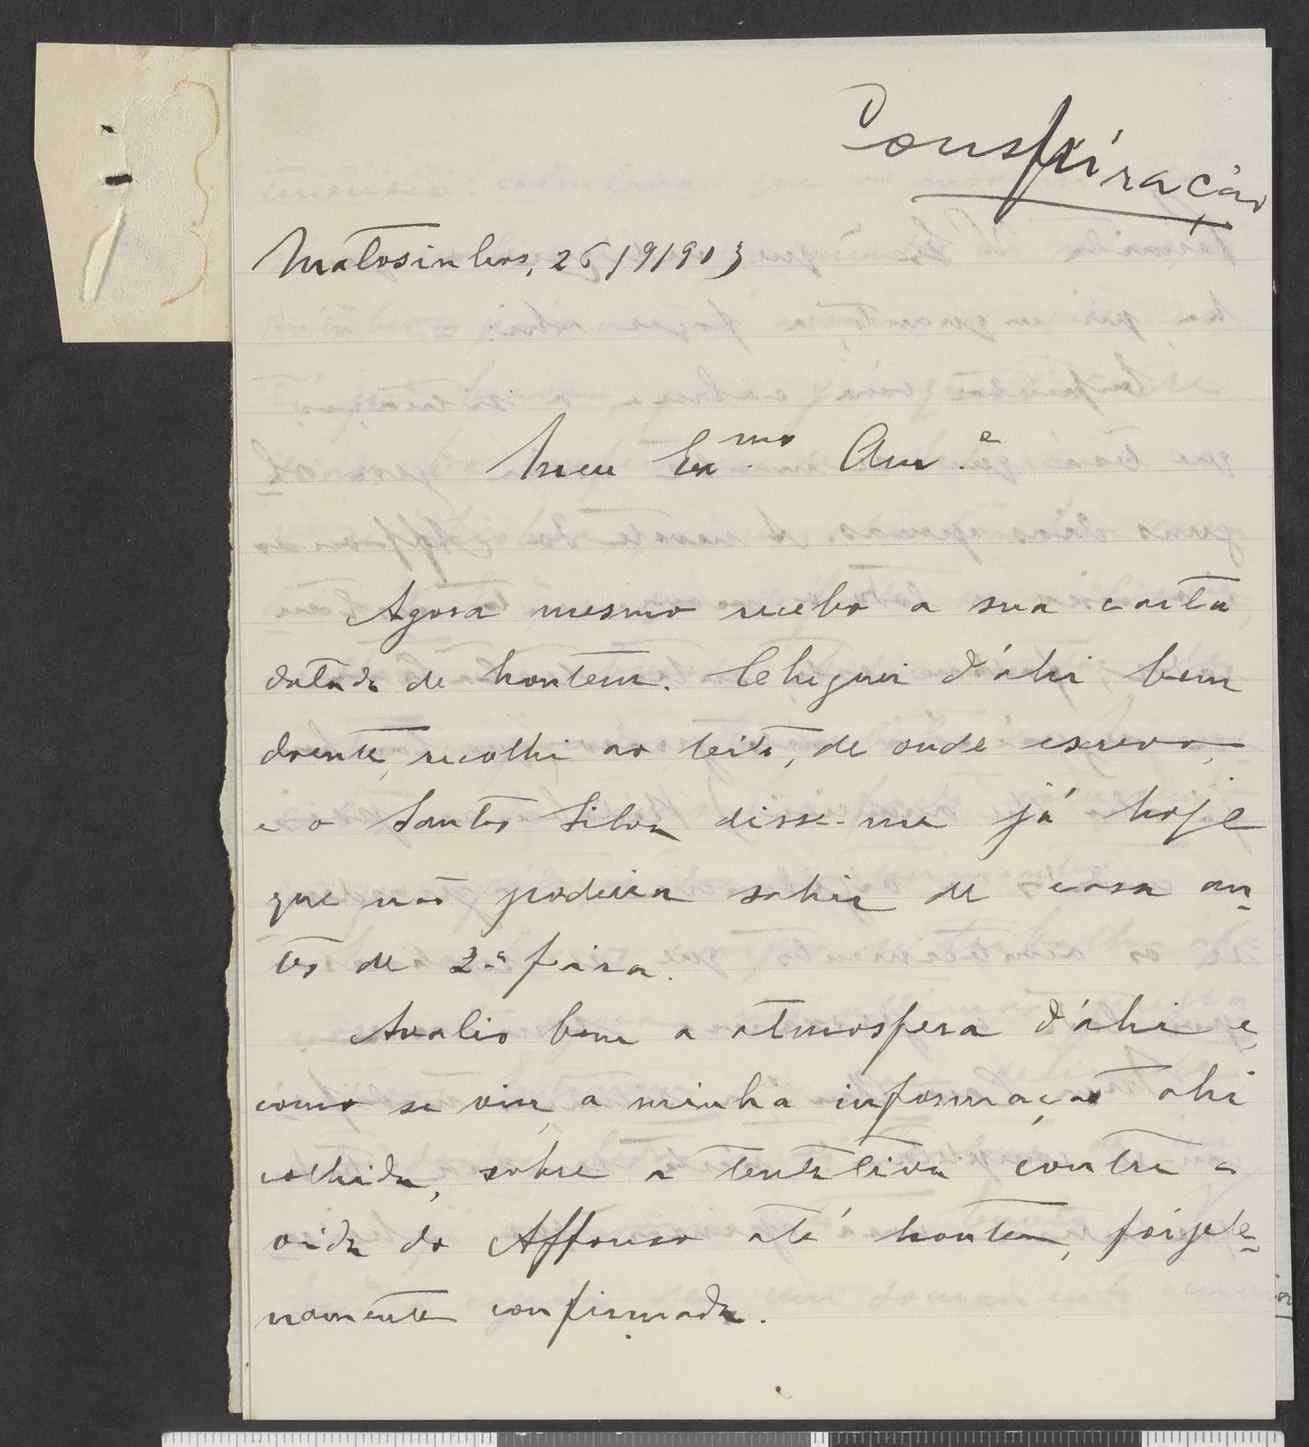 Conspiração
Matosinhos, 26/9/913
Meu Ex.mo Am.º
Agora mesmo recebo a sua carta
datada de hontem. Cheguei d'ahi bem
doente, recolhi ao leito, de onde escrevo,
e o Santos Silva disse-me já hoje
que não poderia sahir de casa an-
tes de 2.ª feira.
Avalio bem a atmosfera d'ahi e,
como se viu, a minha informação ahi
colhida, sobre a tentativa contra a
vida do Affonso até hontem, foi ple-
namente confirmada.